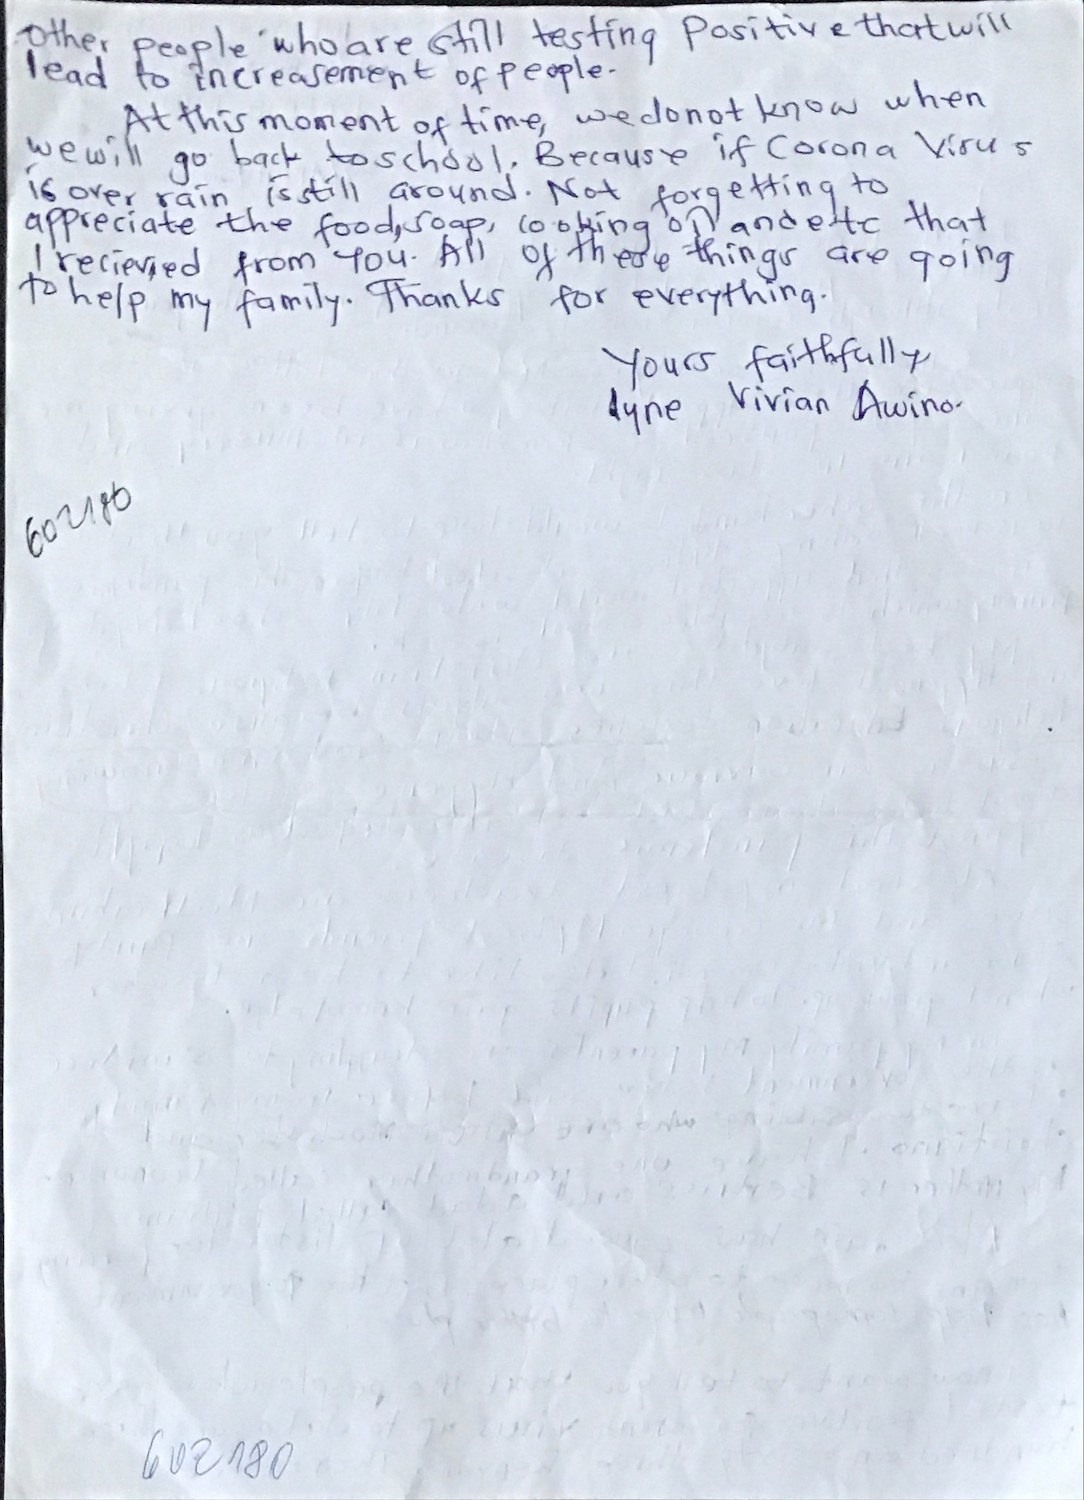 Other people who are still testing Positive that will
lead to increasement of people.
At this moment of time, we do not know when
we will go back to school. Because if Corona Virus
is over rain is still around. Not forgetting to
appreciate the food, soap, cooking oil and etc that
I recievied from You. All of these things are going
to help my family. Thanks for everything.
Yours faithfully
Lyne Vivian Awino.
602180
602180